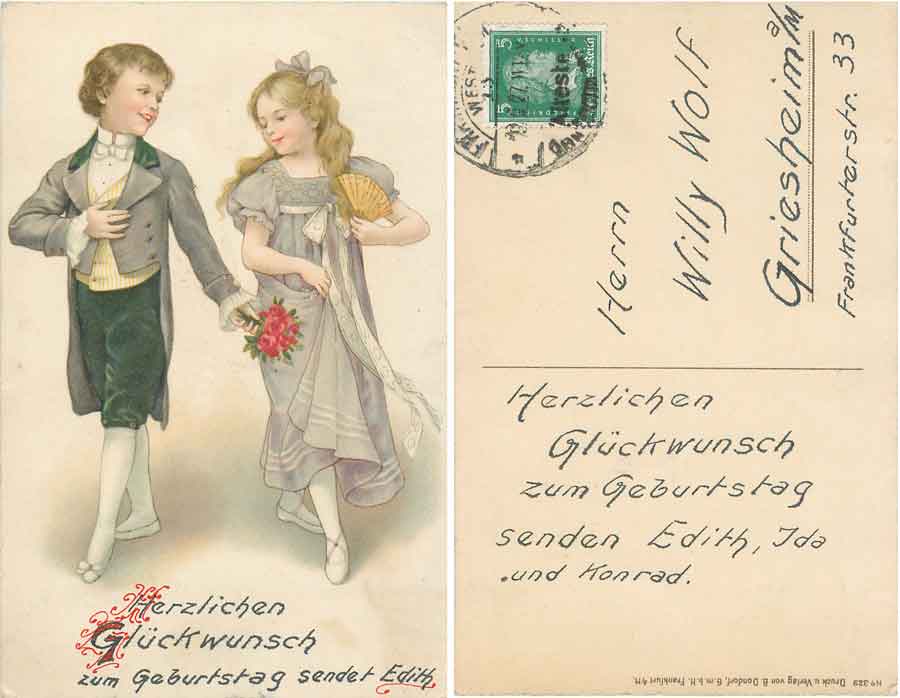 Herzlichen
Glückwunsch
zum Geburtstag sendet Edith
5 5
Herrn
Willy Wolf
Griesheim a/M
Frankfurterstr. 33
Herzlichen
Glückwunsch
zum Geburtstag
senden Edith, Ida
und Konrad.
No 329 Druck u. Verlag von B. Dondorf, G.m.b.H. Frankfurt a/M.